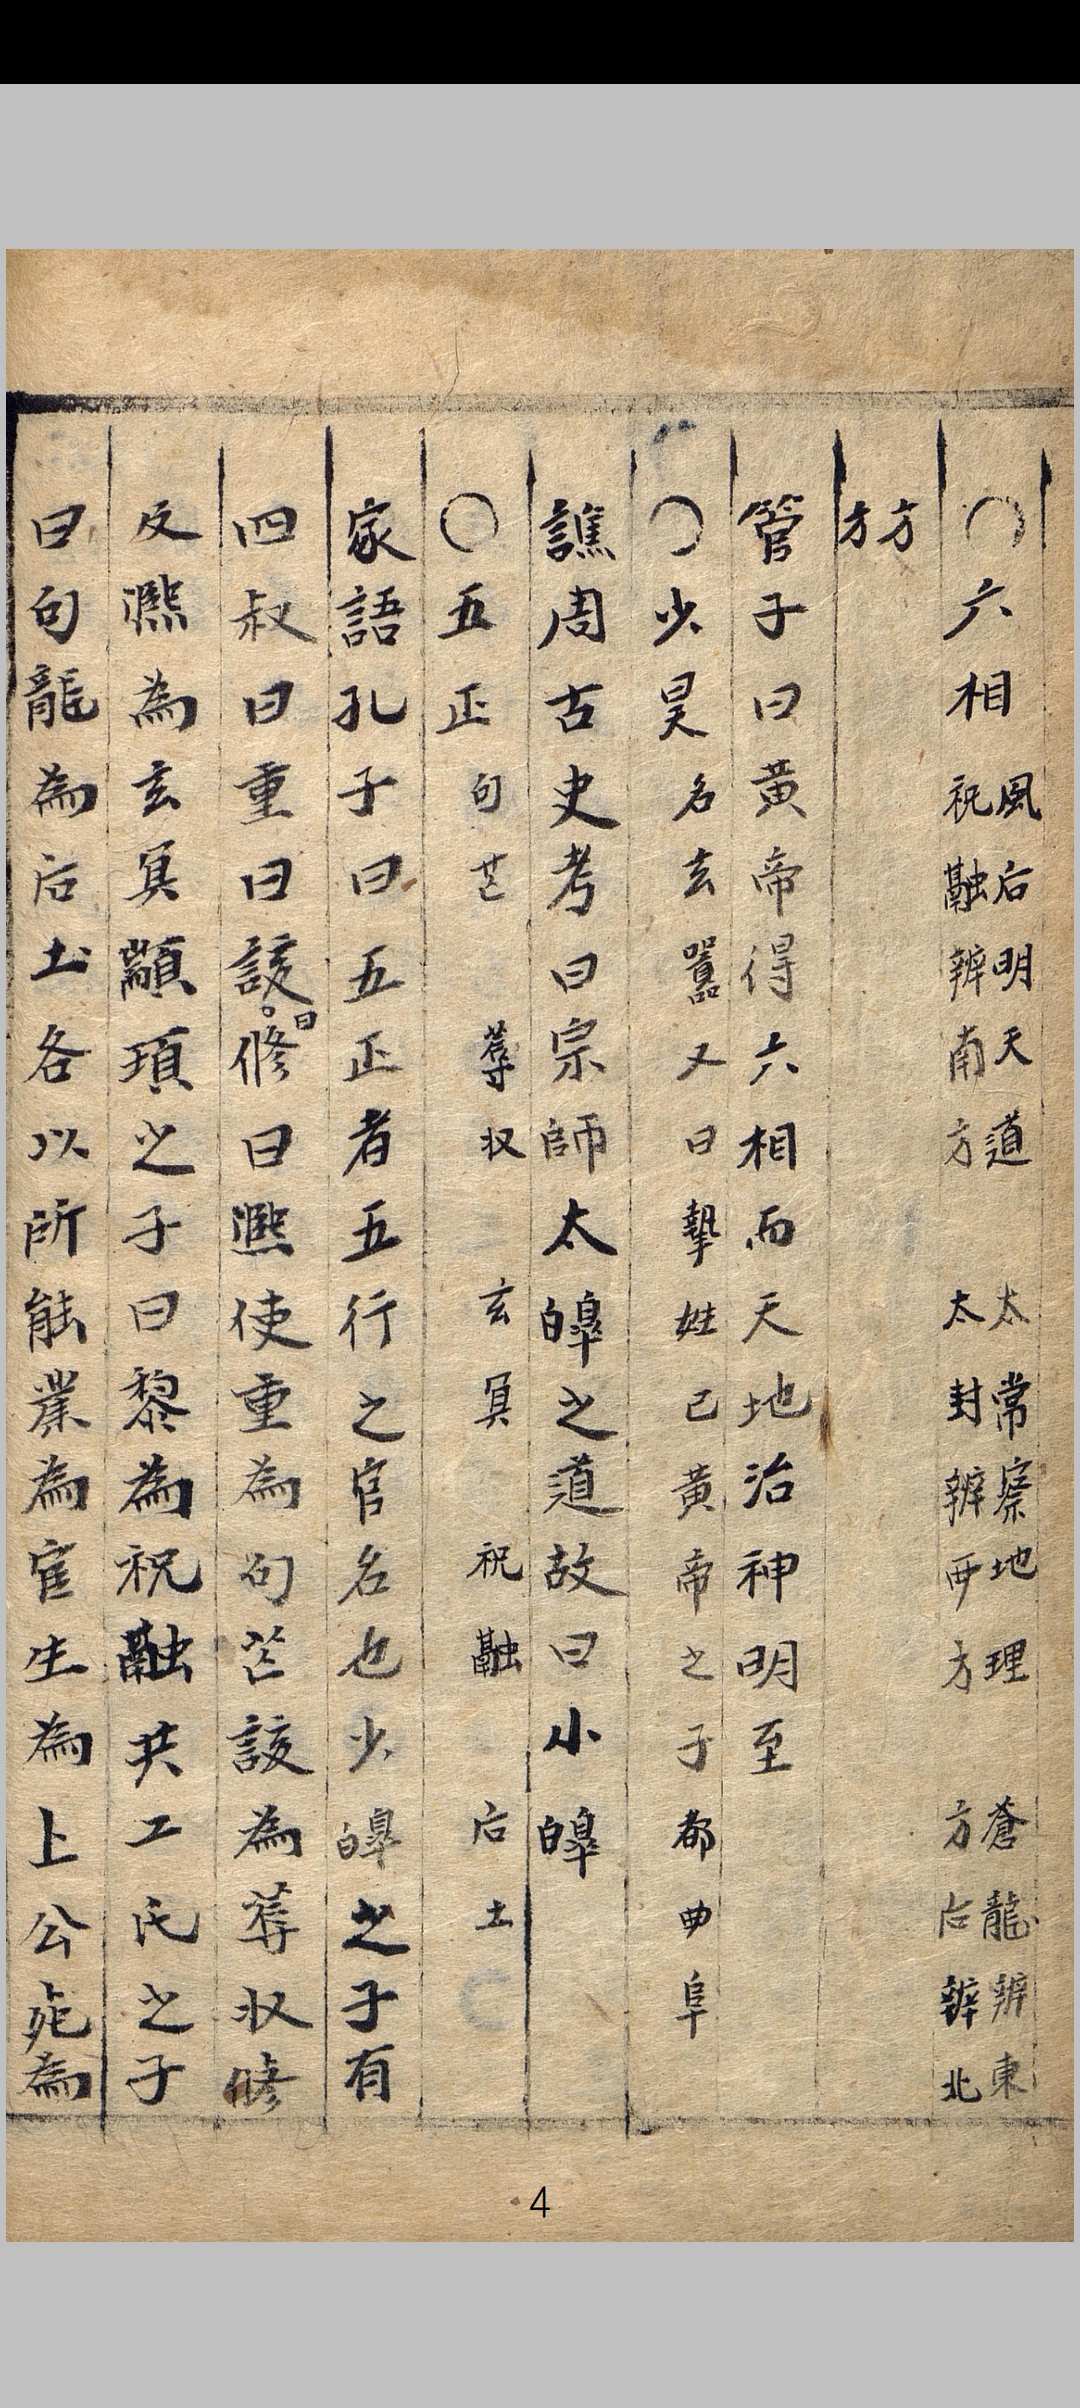 ○六相 風后明天道 太常察地理 蒼龍辨東
祝融辨南方 太封辨西方 后辨北
方方
管子曰黃帝得六相而天地治神明至
○少昊 名玄囂又曰摯姓己黃帝之子都曲阜
譙周古史考曰宗師太皞之道故曰小皞
○五正 句芒 蓐收 玄冥 祝融 后土
家語孔子曰五正者五行之官名也少皞之子有
四叔曰重曰該曰修曰熈使重為句芒該為蓐收修
及熈為玄冥顓頊之子曰黎為祝融共工氏之子
曰句龍為后土各以所能業為官生為上公死為
4